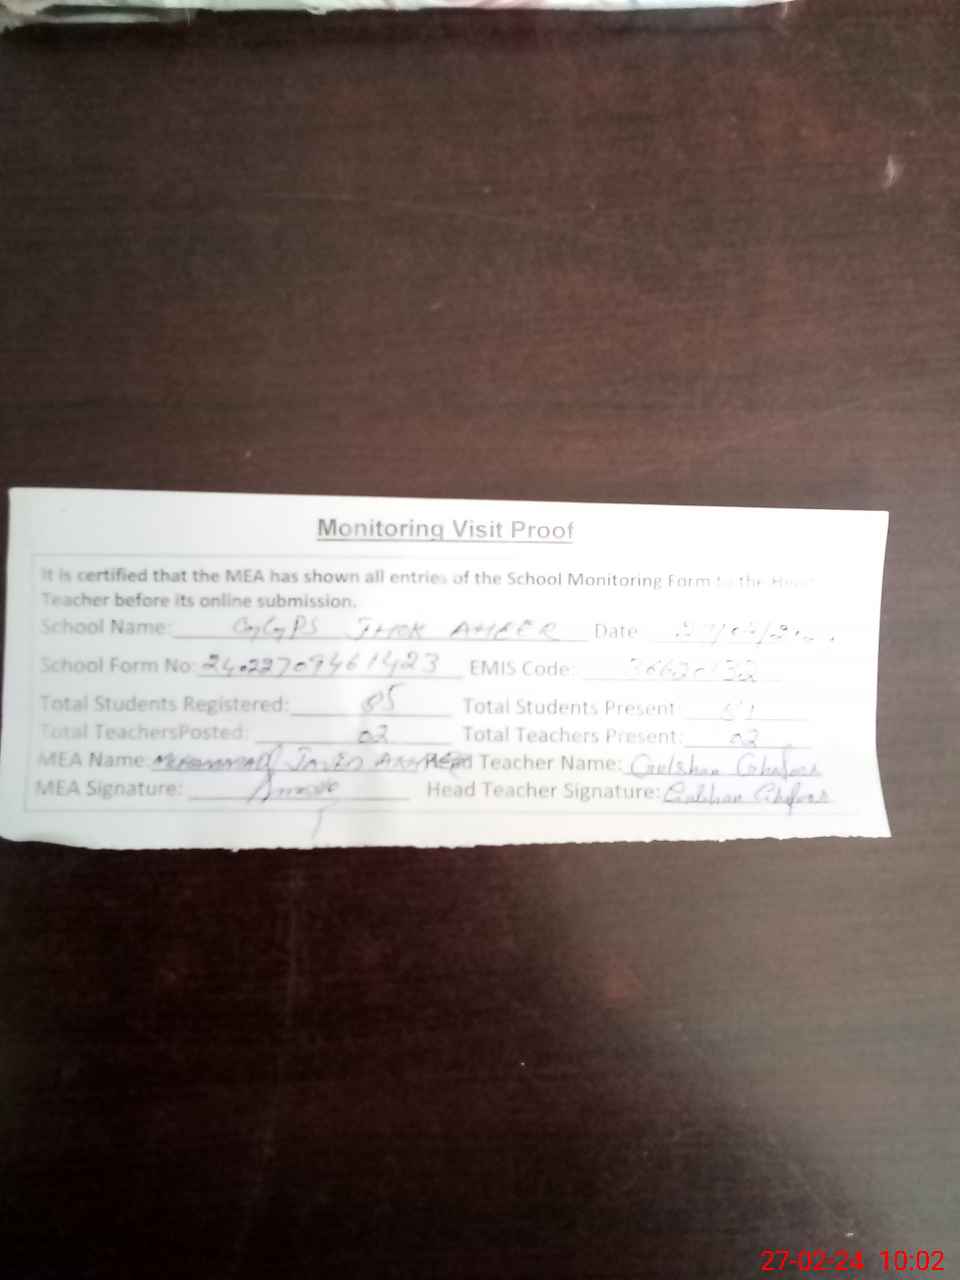 Monitoring Visit Proof
It is certified that the MEA has shown all entries of the School Monitoring Form to the Head
Teacher before its online submission.
School Name: GGPS JHOK AHEER Date
School Form No: EMIS Code:
Total Students Registered: 85 Total Students Present
Total TeachersPosted: 02 Total Teachers Present: 02
MEA Name: MUHAMMAD JAVED Head Teacher Name: Gulshan
MEA Signature: Head Teacher Signature: Gulshan
27-02-24 10:02